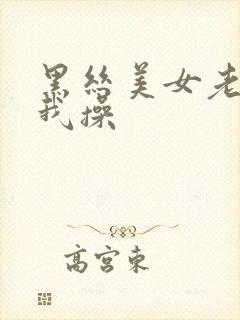 黑丝美女老
我操
高宫东